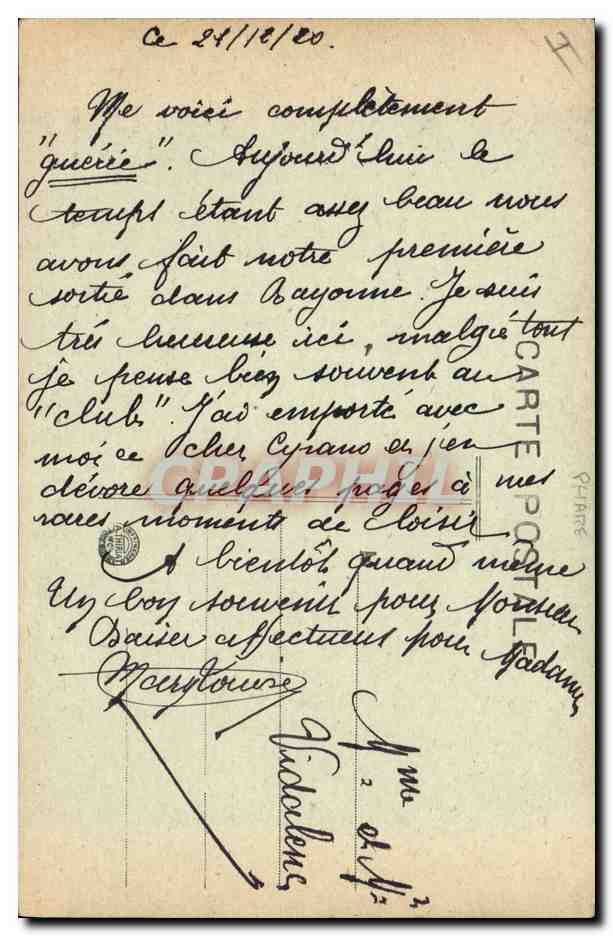 Ce 21/12/20.
Me voici complètement
"guérie". Aujourd'hui le
temps étant assez beau nous
avons fait notre première
sortie dans Bayonne. Je suis
très heureuse ici, malgré tout
je pense bien souvent au
"club". J'ai emporté avec
moi ce cher Cyrano et j'en
dévore quelques pages à mes
rares moments de loisir
A bientôt quand même
Un bon souvenir pour Monsieur
Baiser affectueux pour Madame
Mary Louise
Mme et Mr
Vidalenc
CARTE POSTALE
PHARE